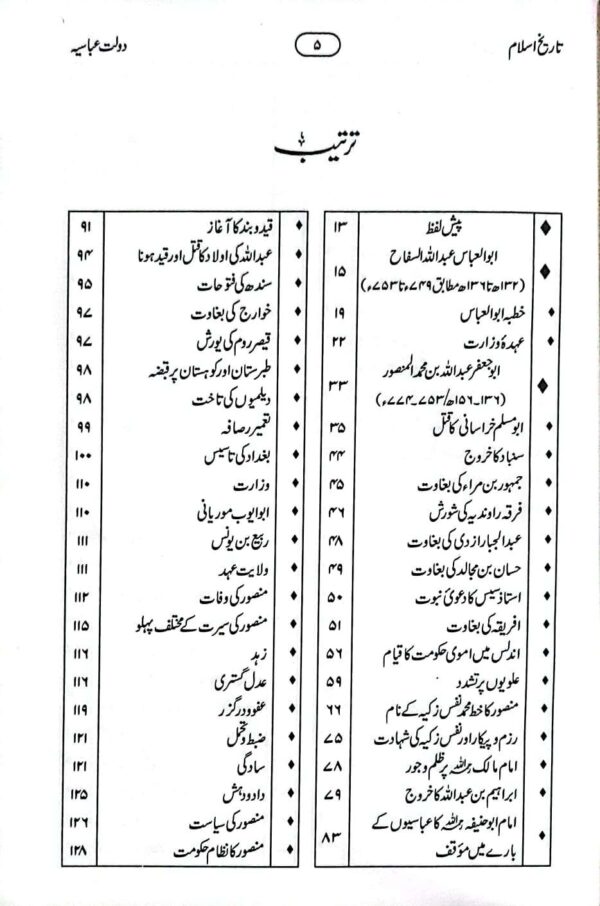 تاریخ اسلام ۵ دولت عباسیہ
ترتیب
♦ پیش لفظ ۱۳
♦ ابوالعباس عبداللہ السفاح
(۱۳۲ھ تا ۱۳۶ھ مطابق ۷۴۹ء تا ۷۵۳ء) ۱۵
♦ خطبہ ابوالعباس ۱۹
♦ عہدۂ وزارت ۲۲
♦ ابوجعفر عبداللہ بن محمد المنصور
(۱۳۶۔۱۵۶ھ/۷۵۳۔۷۷۴ء) ۳۳
♦ ابو مسلم خراسانی کا قتل ۳۵
♦ سنباد کا خروج ۴۴
♦ جمہور بن مراء کی بغاوت ۴۵
♦ فرقہ راوندیہ کی شورش ۴۶
♦ عبدالجبار ازدی کی بغاوت ۴۸
♦ حسان بن مجالد کی بغاوت ۴۹
♦ استاذ سیس کا دعویٰ نبوت ۵۰
♦ افریقہ کی بغاوت ۵۱
♦ اندلس میں اموی حکومت کا قیام ۵۶
♦ علویوں پر تشدد ۵۹
♦ منصور کا خط محمد نفس زکیہ کے نام ۶۶
♦ رزم و پیکار اور نفس زکیہ کی شہادت ۷۵
♦ امام مالک رحمہ اللہ پر ظلم و جور ۷۸
♦ ابراہیم بن عبداللہ کا خروج ۷۹
♦ امام ابو حنیفہ رحمہ اللہ کا عباسیوں کے
بارے میں مؤقف ۸۳
♦ قید و بند کا آغاز ۹۱
♦ عبداللہ کی اولاد کا قتل اور قید ہونا ۹۴
♦ سندھ کی فتوحات ۹۵
♦ خوارج کی بغاوت ۹۷
♦ قیصر روم کی یورش ۹۷
♦ طبرستان اور کوہستان پر قبضہ ۹۸
♦ دیلمیوں کی تاخت ۹۸
♦ تعمیر رصافہ ۹۹
♦ بغداد کی تاسیس ۱۰۰
♦ وزارت ۱۱۰
♦ ابو ایوب موریانی ۱۱۰
♦ ربیع بن یونس ۱۱۱
♦ ولایت عہد ۱۱۱
♦ منصور کی وفات ۱۱۲
♦ منصور کی سیرت کے مختلف پہلو ۱۱۵
♦ زہد ۱۱۶
♦ عدل گستری ۱۱۶
♦ عفو و درگزر ۱۱۹
♦ ضبط و تحمل ۱۲۱
♦ سادگی ۱۲۱
♦ داد و دہش ۱۲۵
♦ منصور کی سیاست ۱۲۶
♦ منصور کا نظام حکومت ۱۲۸